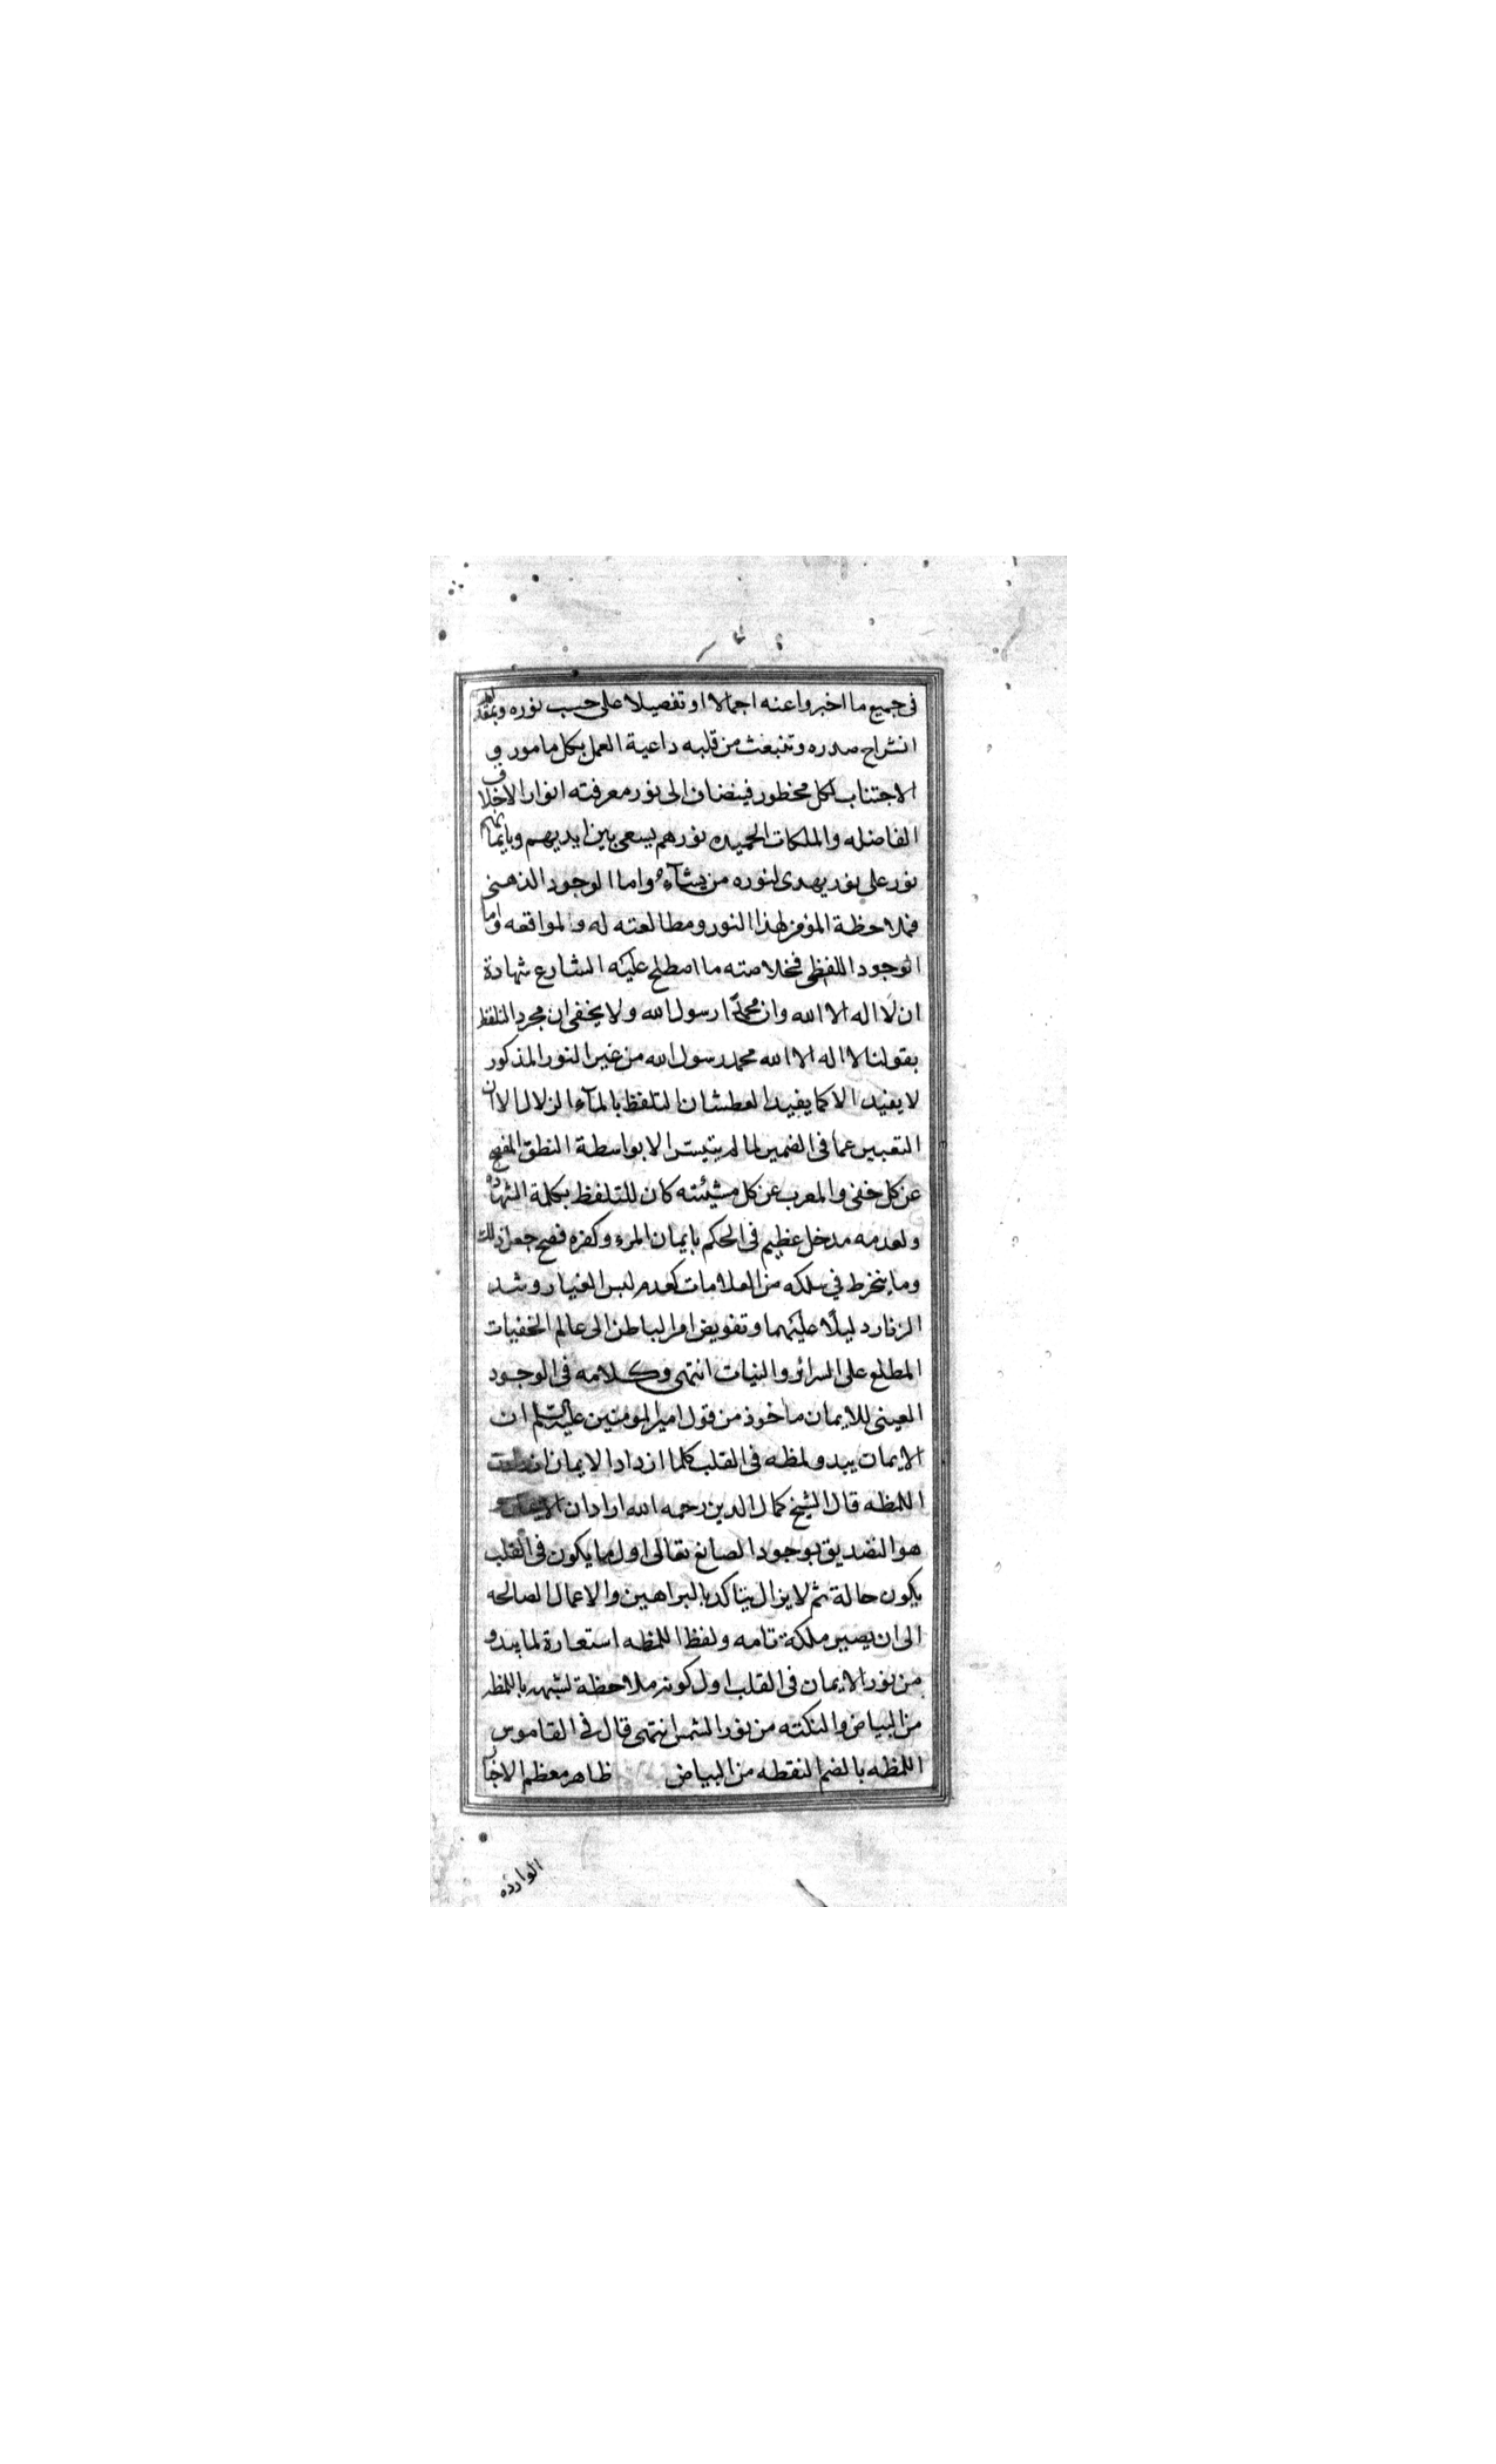 فى جميع ما اخبروا عنه اجمالا او تفصيلا على حسب نوره وبمقدار
انشراح صدره وتنبعث من قلبه داعية العمل بكل مامور و
الاجتناب لكل محظور فينضان الى نور معرفته انوار الاخلاق
الفاضله والملكات الحميده نورهم يسعى بين ايديهم وبايمانهم
نور على نور يهدى لنوره من يشآء واما الوجود الذهنى
فملاحظة المؤمن لهذا النور ومطالعته له ولمواقعه واما
الوجود اللفظى فخلاصته ما اصطلح عليه الشارع شهادة
ان لا اله الا الله وان محمدًا رسول الله ولا يخفى ان مجرد التلفظ
بقولنا لا اله الا الله محمد رسول الله من غير النور المذكور
لا يفيد الا كما يفيد العطشان التلفظ بالمآء الزلال الا ان
التعبير عما فى الضمير لما لم يتيسر الا بواسطة النطق المفصح
عن كل خفى والمعرب عن كل مشيئته كان للتلفظ بكلمة الشهاده
ولعدمه مدخل عظيم فى الحكم بايمان المرء وكفره فصح جعل ذلك
وما ينخرط في سلكه من العلامات كعدم لبس الغيار وشد
الزنار دليلًا عليهما وتفويض امر الباطن الى عالم الخفيات
المطلع على السرائر والنيات انتهى وكلامه فى الوجود
العينى للايمان ماخوذ من قول امير المومنين عليه السلم ان
الايمان يبدو لمظه فى القلب كلما ازداد الايمان ازدادت
اللمظه قال الشيخ كمال الدين رحمه الله اراد ان الايمان
هو التصديق بوجود الصانع تعالى اول ما يكون فى القلب
يكون حالة ثم لا يزال يتاكد بالبراهين والاعمال الصالحه
الى ان يصير ملكة تامه ولفظ اللمظه استعارة لما يبدو
من نور الايمان فى القلب اول كونه ملاحظة لشبهه باللمظه
من البياض والنكته من نور الشمس انتهى قال فى القاموس
اللمظه بالضم النقطه من البياض ظاهر معظم الاخبار
الوارده